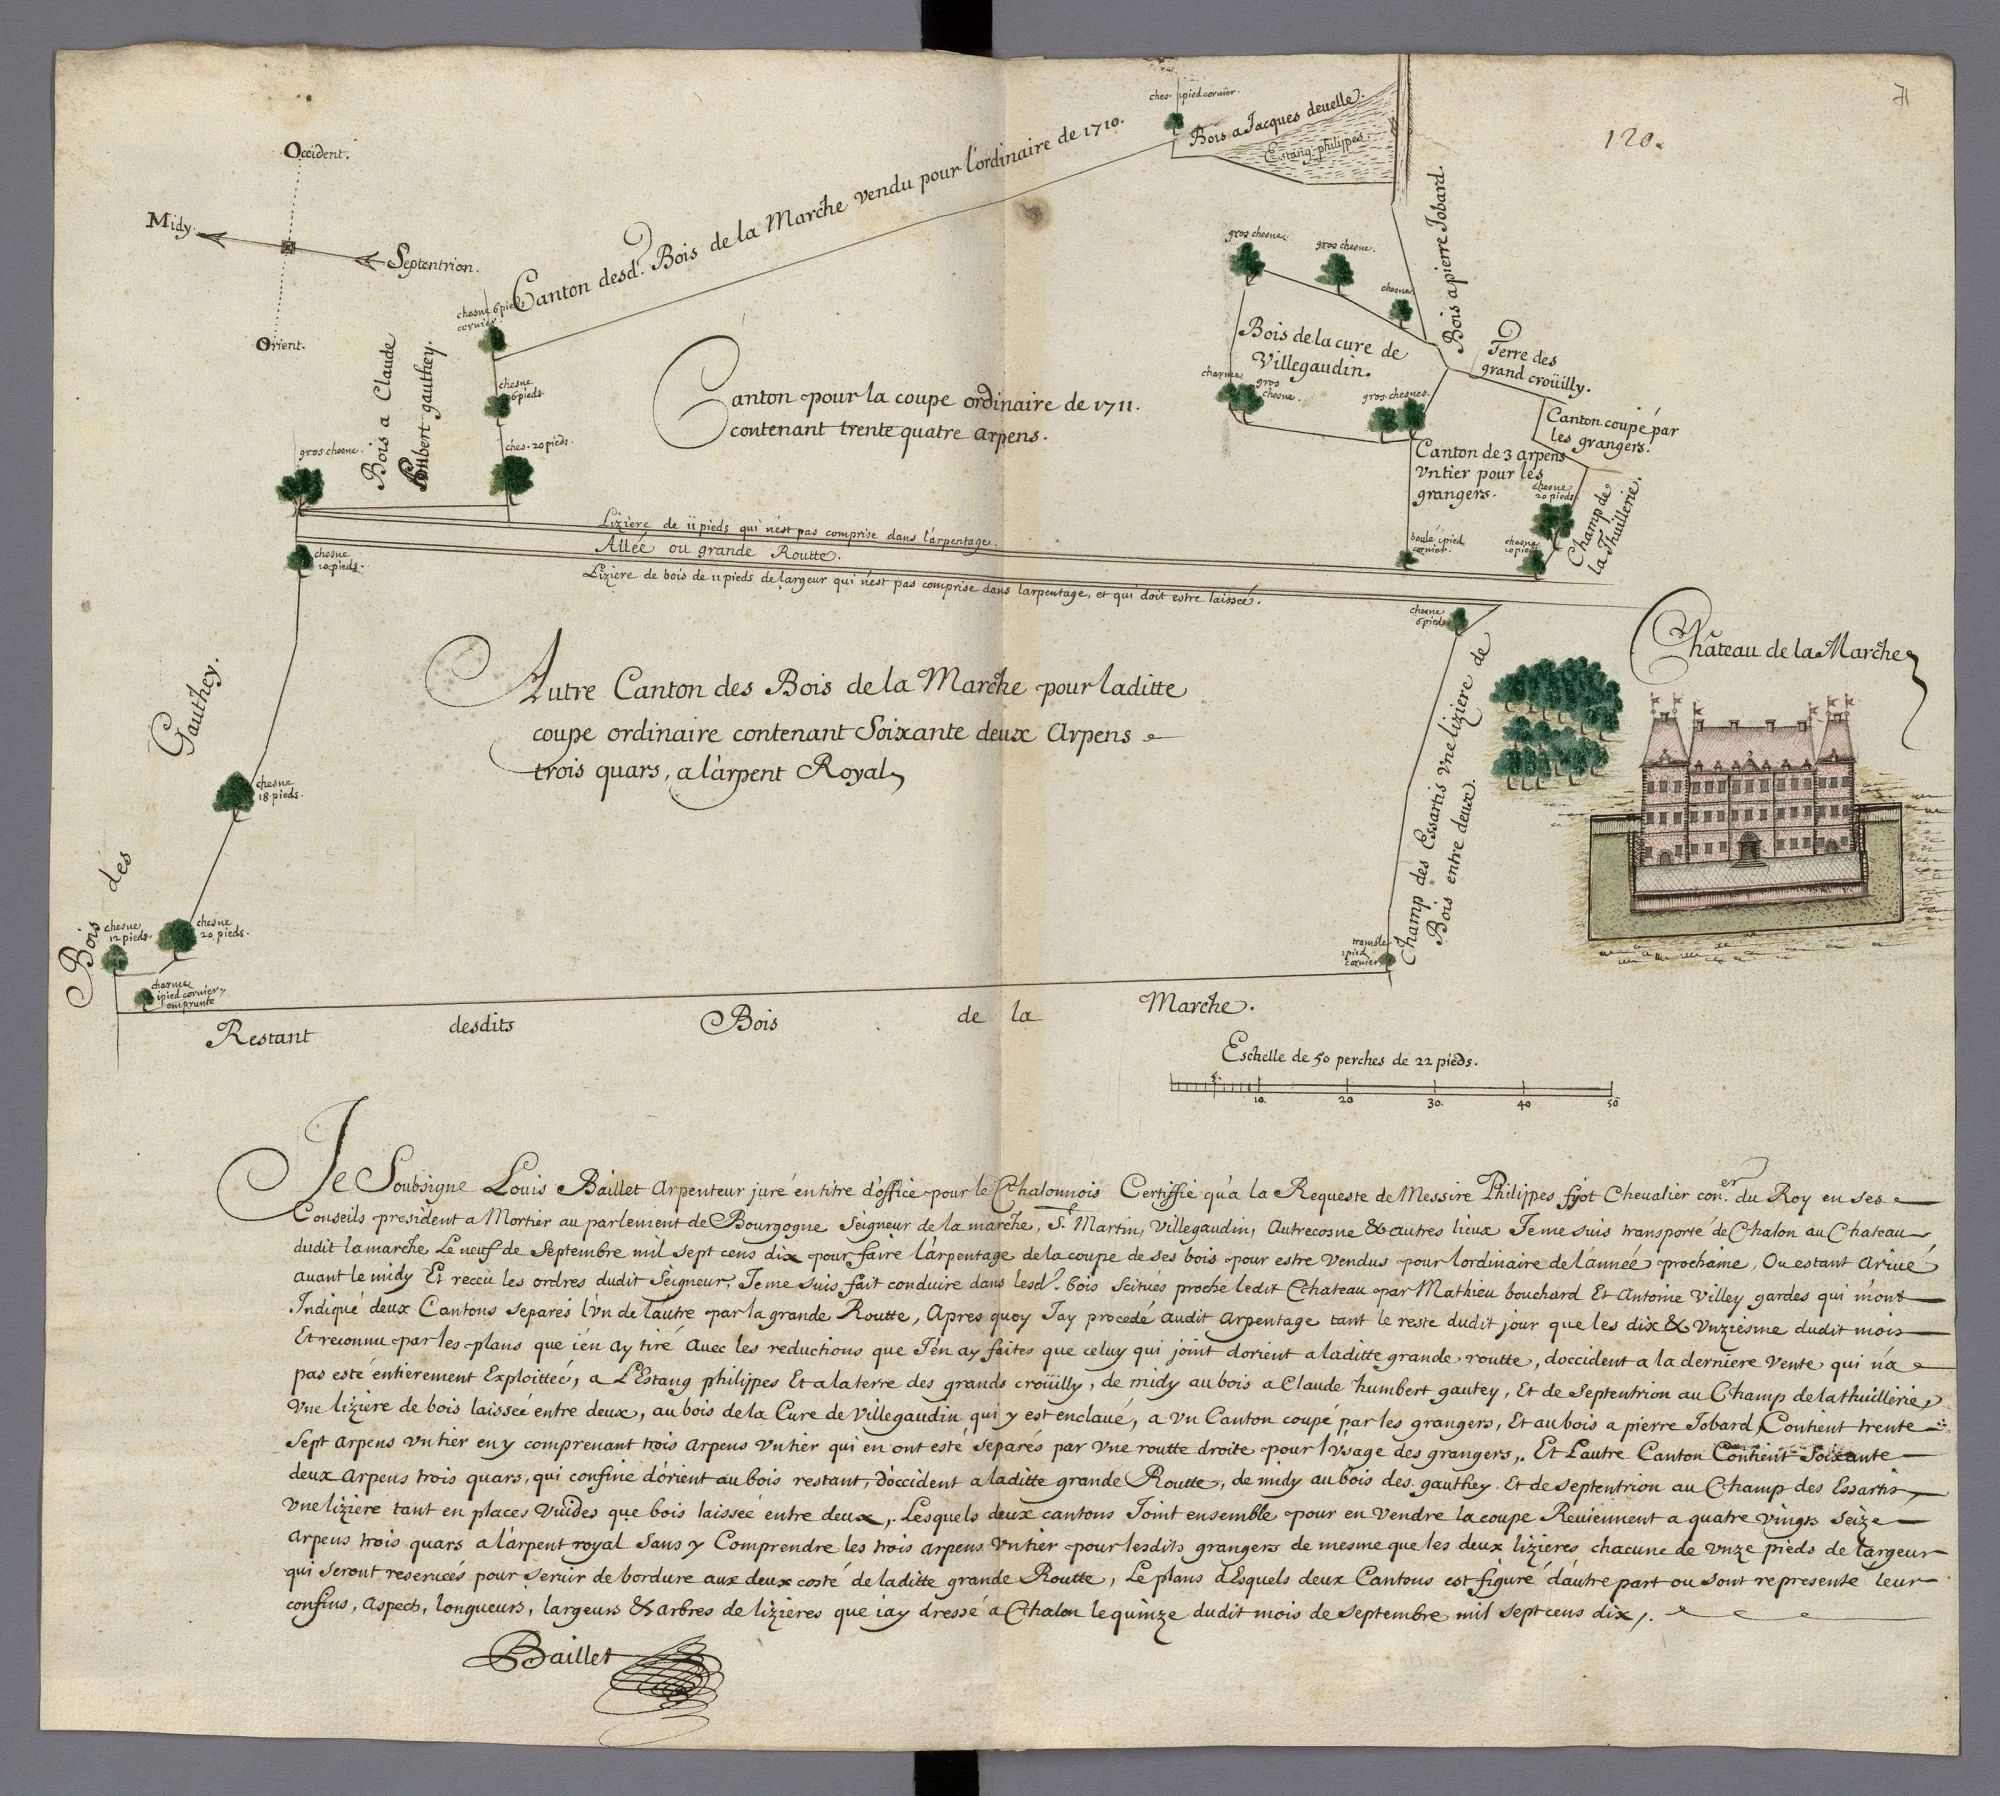 71
120.
Occident.
Midy.
Septentrion.
Orient.
ches. 1pied cornier.
Bois a Jacques deuelle.
Estang philippes.
Canton desd. Bois de la Marche vendu pour l'ordinaire de 1710.
Bois a pierre Jobard.
gros chesne.
gros chesne.
chesne
Bois de la cure de
Villegaudin.
charme
gros
chesne.
gros chesnes.
Terre des
grand croüilly.
Canton coupé par
les grangers.
Canton de 3 arpens
vntier pour les
grangers.
chesne
20 pieds.
Champ de
la Thuillerie.
boule 1pied
cornier.
chesne
10 pieds
chesne 6 pieds
cornier.
chesne
6 pieds.
ches. 20 pieds.
Bois a Claude
humbert gauthey.
gros chesne.
Canton pour la coupe ordinaire de 1711.
contenant trente quatre arpens.
Liziere de 11 pieds qui n'est pas comprise dans l'arpentage.
Allée ou grande Routte.
Liziere de bois de 11 pieds de largeur qui n'est pas comprise dans larpentage, et qui doit estre laisseé.
chesne
10 pieds.
chesne
6 pieds
Autre Canton des Bois de la Marche pour laditte
coupe ordinaire contenant Soixante deux Arpens
trois quars, a l'arpent Royal
Château de la Marche
Champ des Essartis vne liziere de
Bois entre deux.
Bois des Gauthey.
chesne
18 pieds.
chesne
12 pieds
chesne
20 pieds.
charme
1pied cornier
emprunte
tremble
1pied
cornier
Restant desdits Bois de la Marche.
Eschelle de 50 perches de 22 pieds.
5. 10 20 30 40 50
Je Soubsigne Louis Baillet Arpenteur juré en titre d'office pour le Chalonnois Certiffie qu'a la Requeste de Messire Philippes fyot Cheualier con.er du Roy en ses
Conseils president a Mortier au parlement de Bourgogne Seigneur de la marche, S.t Martin, Villegaudin, Autrecosne & autres lieux Je me suis transporté de Chalon au Chateau
dudit la marche Le neuf de Septembre mil sept cens dix pour faire L'arpentage de la coupe de ses bois pour estre vendus pour lordinaire de l'année prochaine, Ou estant Ariué
auant le midy Et receu les ordres dudit Seigneur, Je me suis fait conduire dans lesd. bois Scitués proche ledit Chateau par Mathieu bouchard Et Antoine Villey gardes qui m'ont
Indiqué deux Cantons separés l'vn de l'autre par la grande Routte, Apres quoy Jay procedé audit Arpentage tant le reste dudit jour que les dix & vnziesme dudit mois
Et reconnu par les plans que i'en ay tiré Auec les reductions que J'en ay faites que celuy qui joint dorient a laditte grande routte, doccident a la derniere vente qui n'a
pas esté entierement Exploittée, a L'Estang philippes Et a la terre des grands croüilly, de midy au bois a Claude humbert gautey, Et de Septentrion au Champ de la thuillerie
vne liziere de bois laisseé entre deux, au bois de la Cure de Villegaudin qui y est enclaué, a vn Canton coupé par les grangers, Et au bois a pierre Jobard Contient trente
Sept Arpens vntier en y comprenant trois Arpens vntier qui en ont esté separés par vne routte droite pour l'vsage des grangers, Et L'autre Canton Contient Soixante
deux arpens trois quars, qui confine d'orient au bois restant, d'occident a laditte grande Routte, de midy au bois des gauthey Et de septentrion au Champ des Essartis
vne liziere tant en places vuides que bois laisseé entre deux, Lesquels deux cantons Joint ensemble pour en vendre la coupe Reuiennent a quatre vingts seize
arpens trois quars a l'arpent royal sans y Comprendre les trois arpens vntier pour lesdits grangers de mesme que les deux lizieres chacune de vnze pieds de largeur
qui seront reserueés pour seruir de bordure aux deux costé de laditte grande Routte, Le plans d'Esquels deux Cantons est figuré d'autre part ou sont representé leur
confins, aspects, longueurs, largeurs & arbres de lizieres que iay dressé a Chalon le quinze dudit mois de septembre mil sept cens dix,.
Baillet